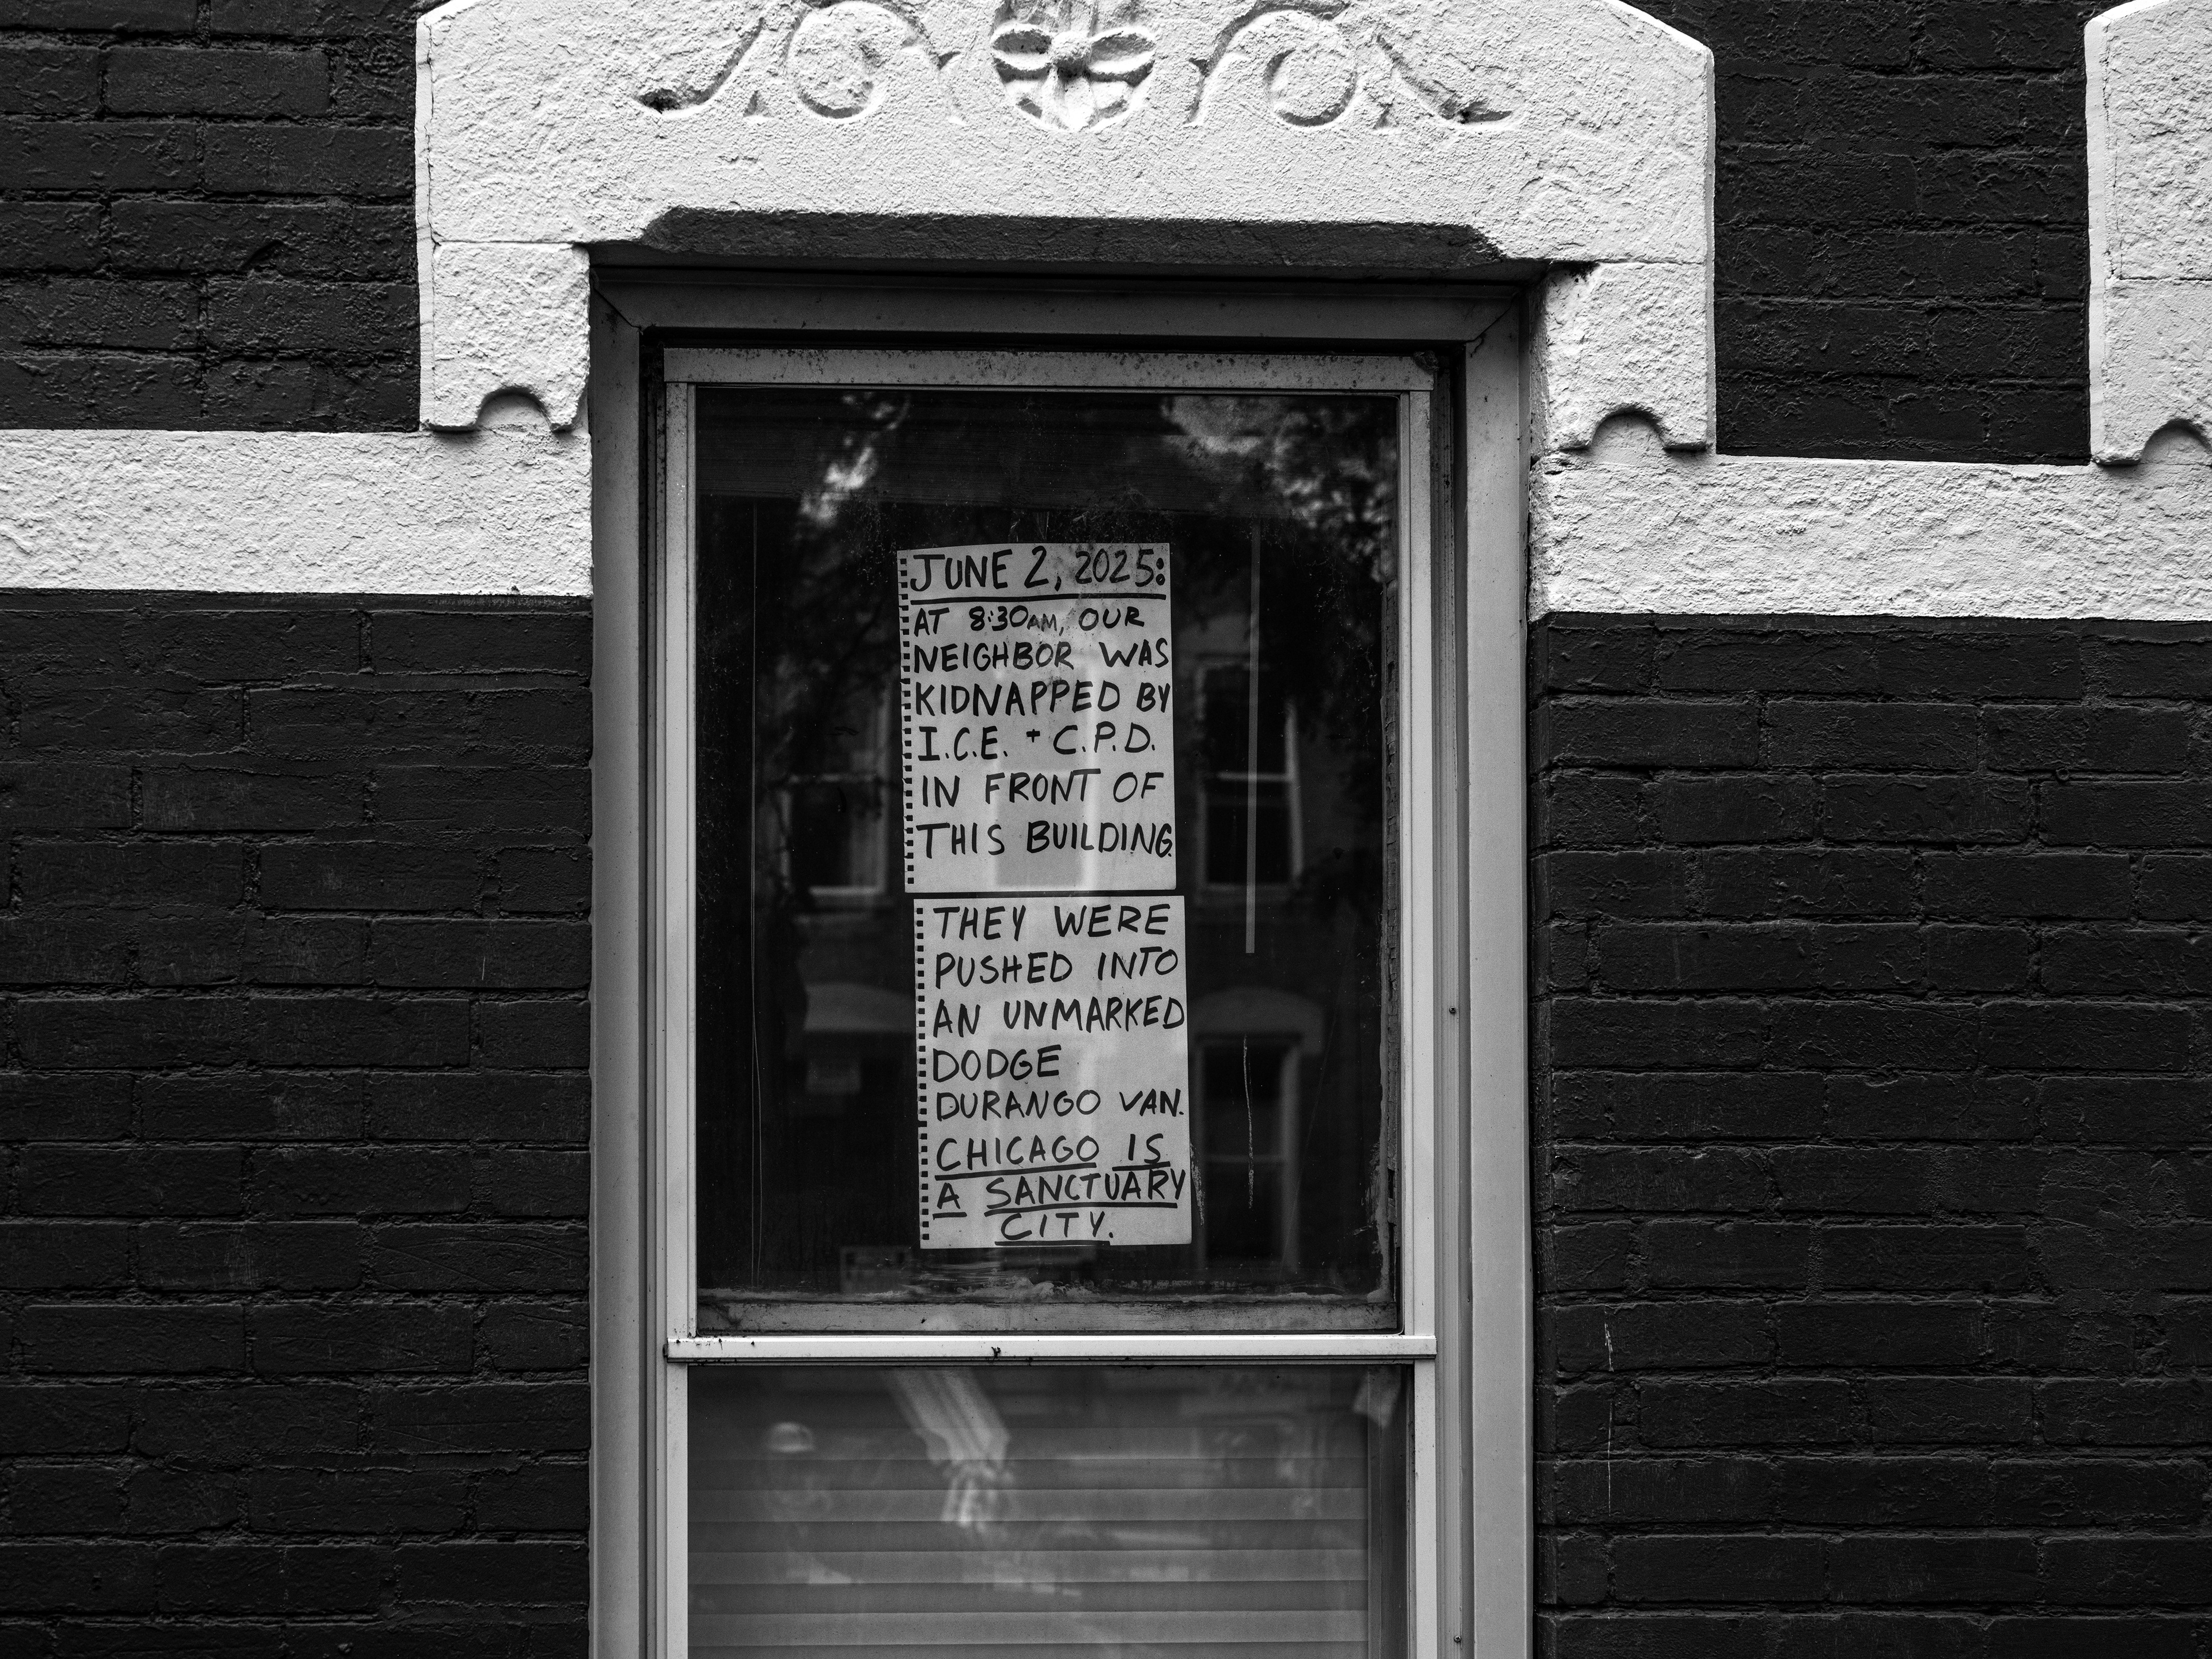 JUNE 2, 2025:
AT 8:30AM, OUR
NEIGHBOR WAS
KIDNAPPED BY
I.C.E. + C.P.D.
IN FRONT OF
THIS BUILDING.
THEY WERE
PUSHED INTO
AN UNMARKED
DODGE
DURANGO VAN.
CHICAGO IS
A SANCTUARY
CITY.